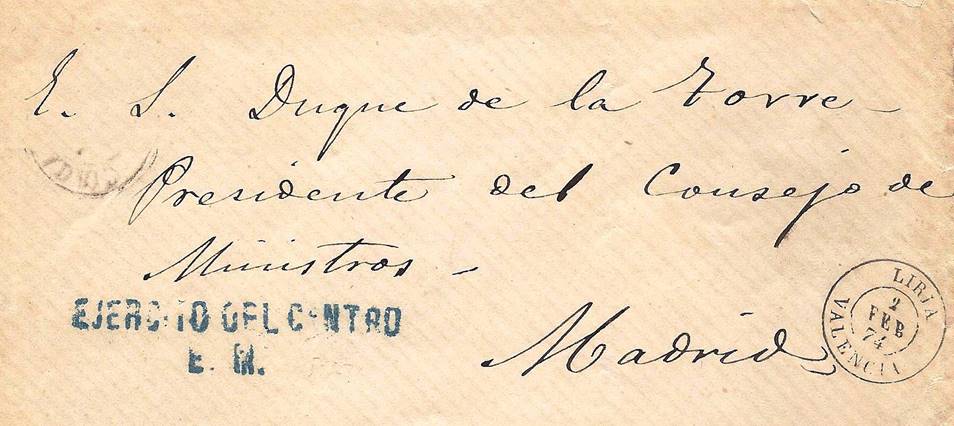 E. S. Duque de la Torre
Presidente del Consejo de
Ministros -
EJERCITO DEL CENTRO
E. M.
Madrid
LIRIA
2
FEB
74
VALENCIA